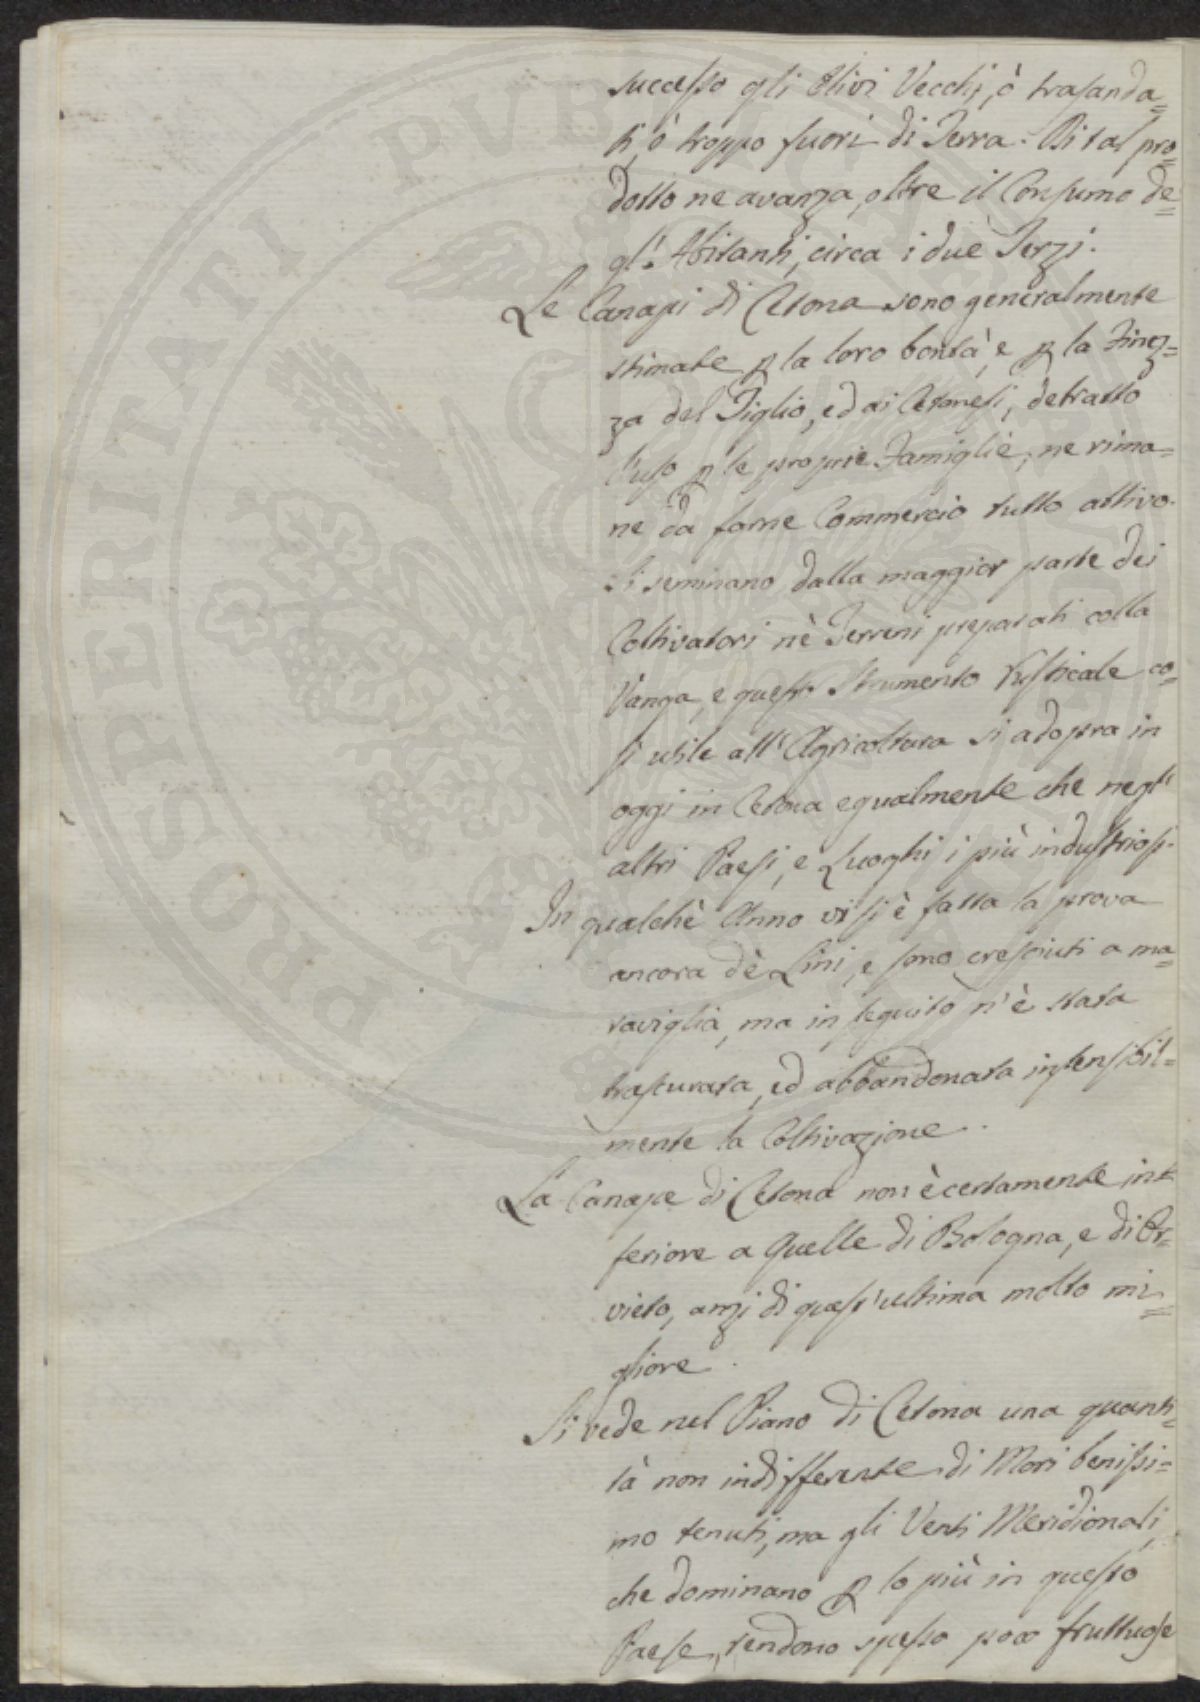 successo gli Olivi Vecchj, ò trasanda=
ti, ò troppo fuori di Terra. Di tal pro=
dotto ne avanza, oltre il Consumo de=
gl'Abitanti, circa i due Terzi.
Le Canapi di Cetona sono generalmente
stimate p la loro bontà, e p la Finez=
za del Tiglio, ed ai Cetonesi, detratto
l'uso p le proprie Famiglie, ne rima=
ne da farne Commercio tutto attivo.
Si seminano dalla maggior parte dei
Coltivatori nè Terreni preparati colla
Vanga, e questo Strumento Rusticale co=
sì utile all'Agricoltura si adopra in
oggi in Cetona egualmente che negl'
altri Paesi, e Luoghi i più industriosi.
In qualchè Anno vi si è fatta la prova
ancora dè Lini, e sono cresciuti a ma=
raviglia, ma in seguito n'è stata
trascurata, ed abbandonata insensibil=
mente la Coltivazione.
La Canape di Cetona non è certamente in=
feriore a Quelle di Bologna, e di Or=
vieto, anzi di quest'ultima molto mi=
gliore.
Si vede nel Piano di Cetona una quanti=
tà non indifferente di Mori benissi=
mo tenuti, ma gli Venti Meridionali,
che dominano p lo più in questo
Paese, rendono spesso poco fruttuose
PROSPERITATI PUBLICAE